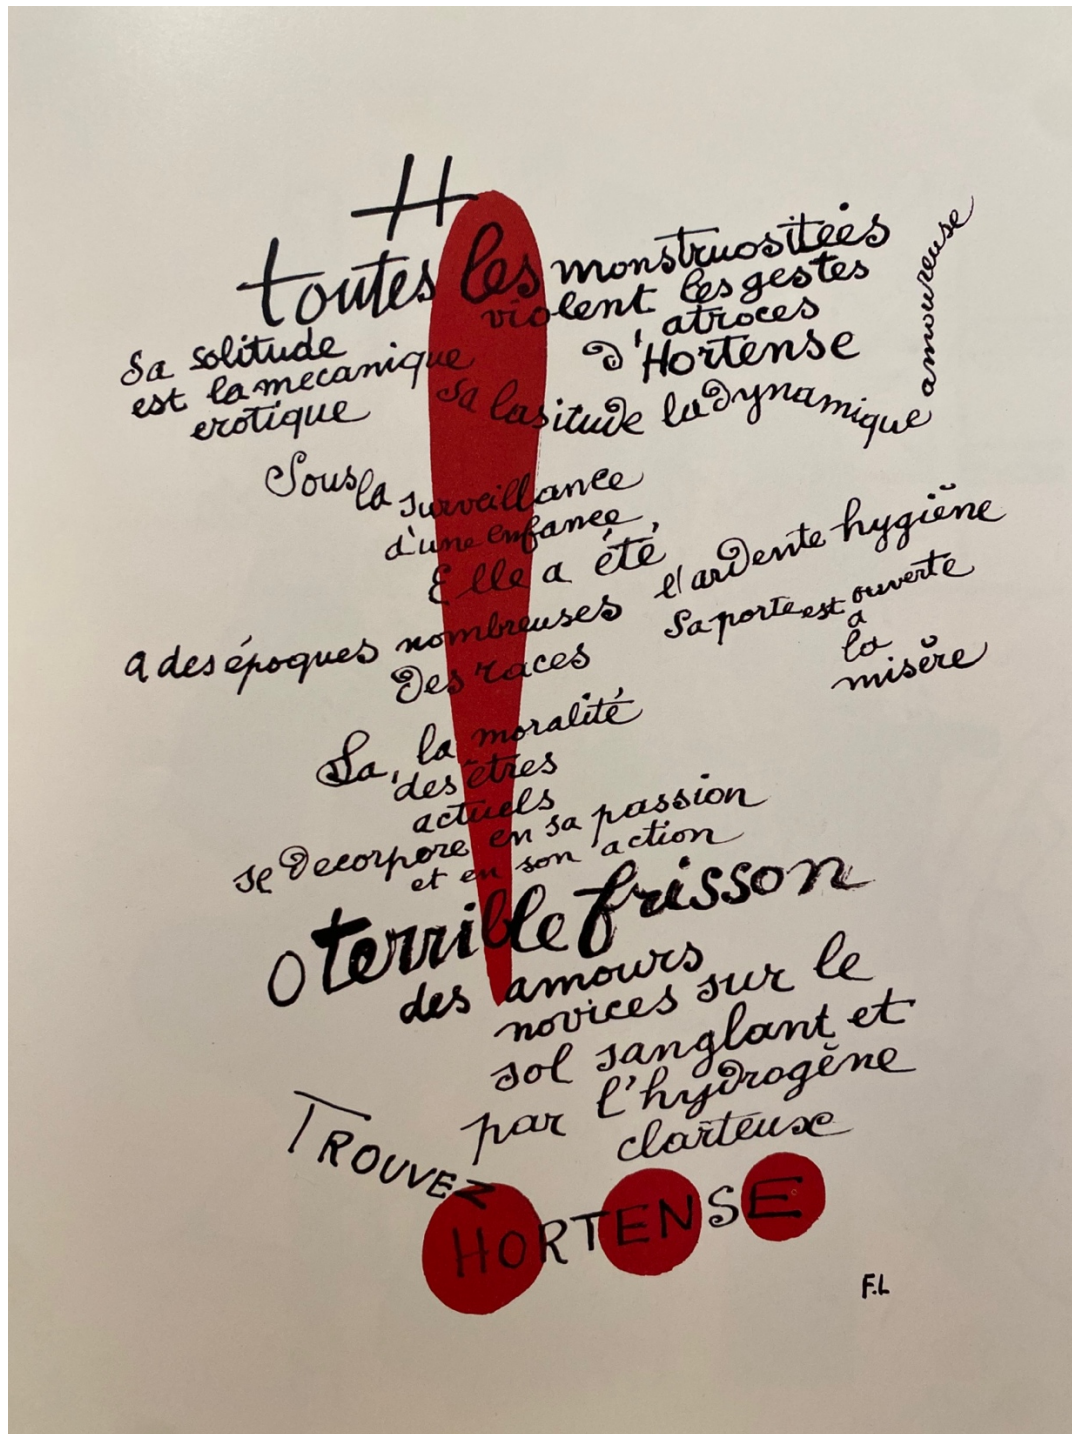 H
toutes les monstruositées
violent les gestes
atroces
d'Hortense
Sa solitude
est la mecanique
erotique
Sa lasitude la dynamique
amoureuse
Sous la surveillance
d'une enfance
Elle a été,
a des époques nombreuses
l'ardente hygiène
Des races
Sa porte est ouverte
a
la
misère
Sa, la moralité
des êtres
actuels
se decorpore en sa passion
et en son action
O terrible frisson
des amours
novices sur le
sol sanglant et
par l'hydrogène
clarteuse
TROUVEZ
HORTENSE
F.L